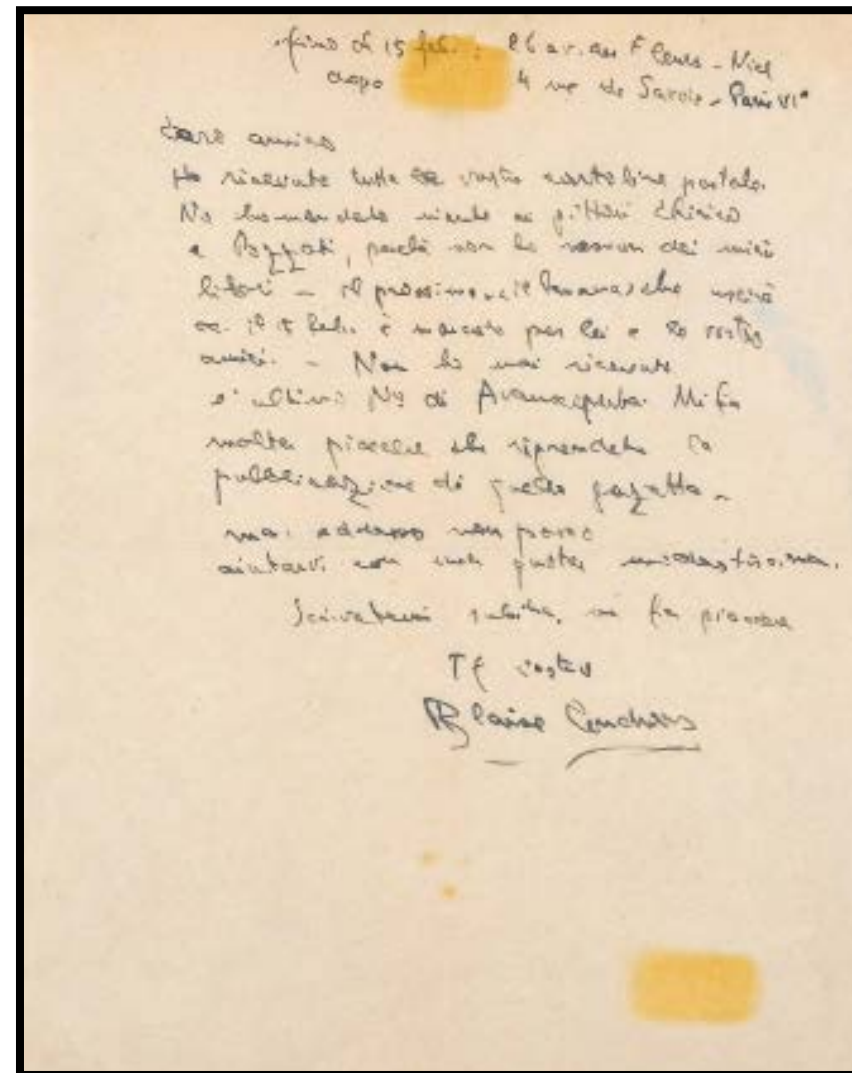 fino di 15 feb. : 26 av. des Fleurs - Nice
dopo 4 rue de Savoie - Paris VI°
Caro amico
Ho ricevute tutte le vostre cartoline postale.
No ho mandato niente ai pittori Chirico
e Pozzati, perchè non ho nessun dei miei
libri - il prossimo, che uscirà
il feb. è marcato per lei e vostro
amici. - Non ho mai ricevute
l'ultimi Ni di Avanscoperta. Mi fa
molta piacere che riprendete la
pubblicazione di quella gazetta -
ma adesso non posso
aiutarvi con una questa
Scrivetemi subito, mi fa piacere
Il vostro
Blaise Cendrars